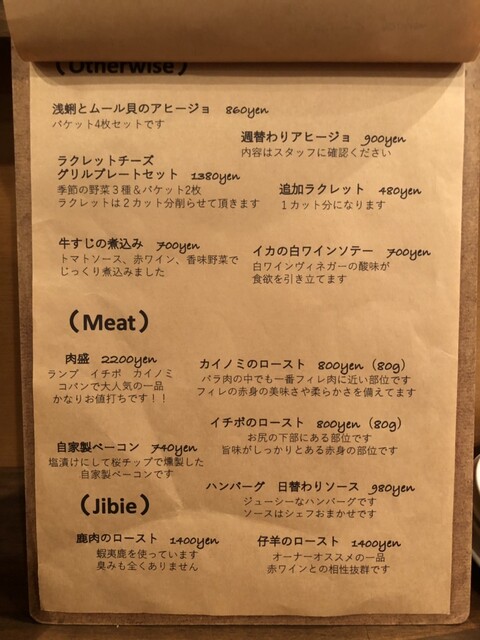 (Otherwise)
浅蜊とムール貝のアヒージョ 860yen
バケット4枚セットです
週替わりアヒージョ 900yen
内容はスタッフに確認ください
ラクレットチーズ
グリルプレートセット 1380yen
季節の野菜3種&バケット2枚
ラクレットは2カット分削らせて頂きます
追加ラクレット 480yen
1カット分になります
牛すじの煮込み 700yen
トマトソース、赤ワイン、香味野菜で
じっくり煮込みました
イカの白ワインソテー 700yen
白ワインヴィネガーの酸味が
食欲を引き立てます
(Meat)
肉盛 2200yen
ランプ イチボ カイノミ
コパンで大人気の一品
かなりお値打ちです!!
カイノミのロースト 800yen(80g)
バラ肉の中でも一番フィレ肉に近い部位です
フィレの赤身の美味さや柔らかさを備えてます
イチボのロースト 800yen(80g)
お尻の下部にある部位です
旨味がしっかりとある赤身の部位です
自家製ベーコン 740yen
塩漬けにして桜チップで燻製した
自家製ベーコンです
ハンバーグ 日替わりソース 980yen
ジューシーなハンバーグです
ソースはシェフおまかせです
(Jibie)
鹿肉のロースト 1400yen
蝦夷鹿を使っています
臭みも全くありません
仔羊のロースト 1400yen
オーナーオススメの一品
赤ワインとの相性抜群です